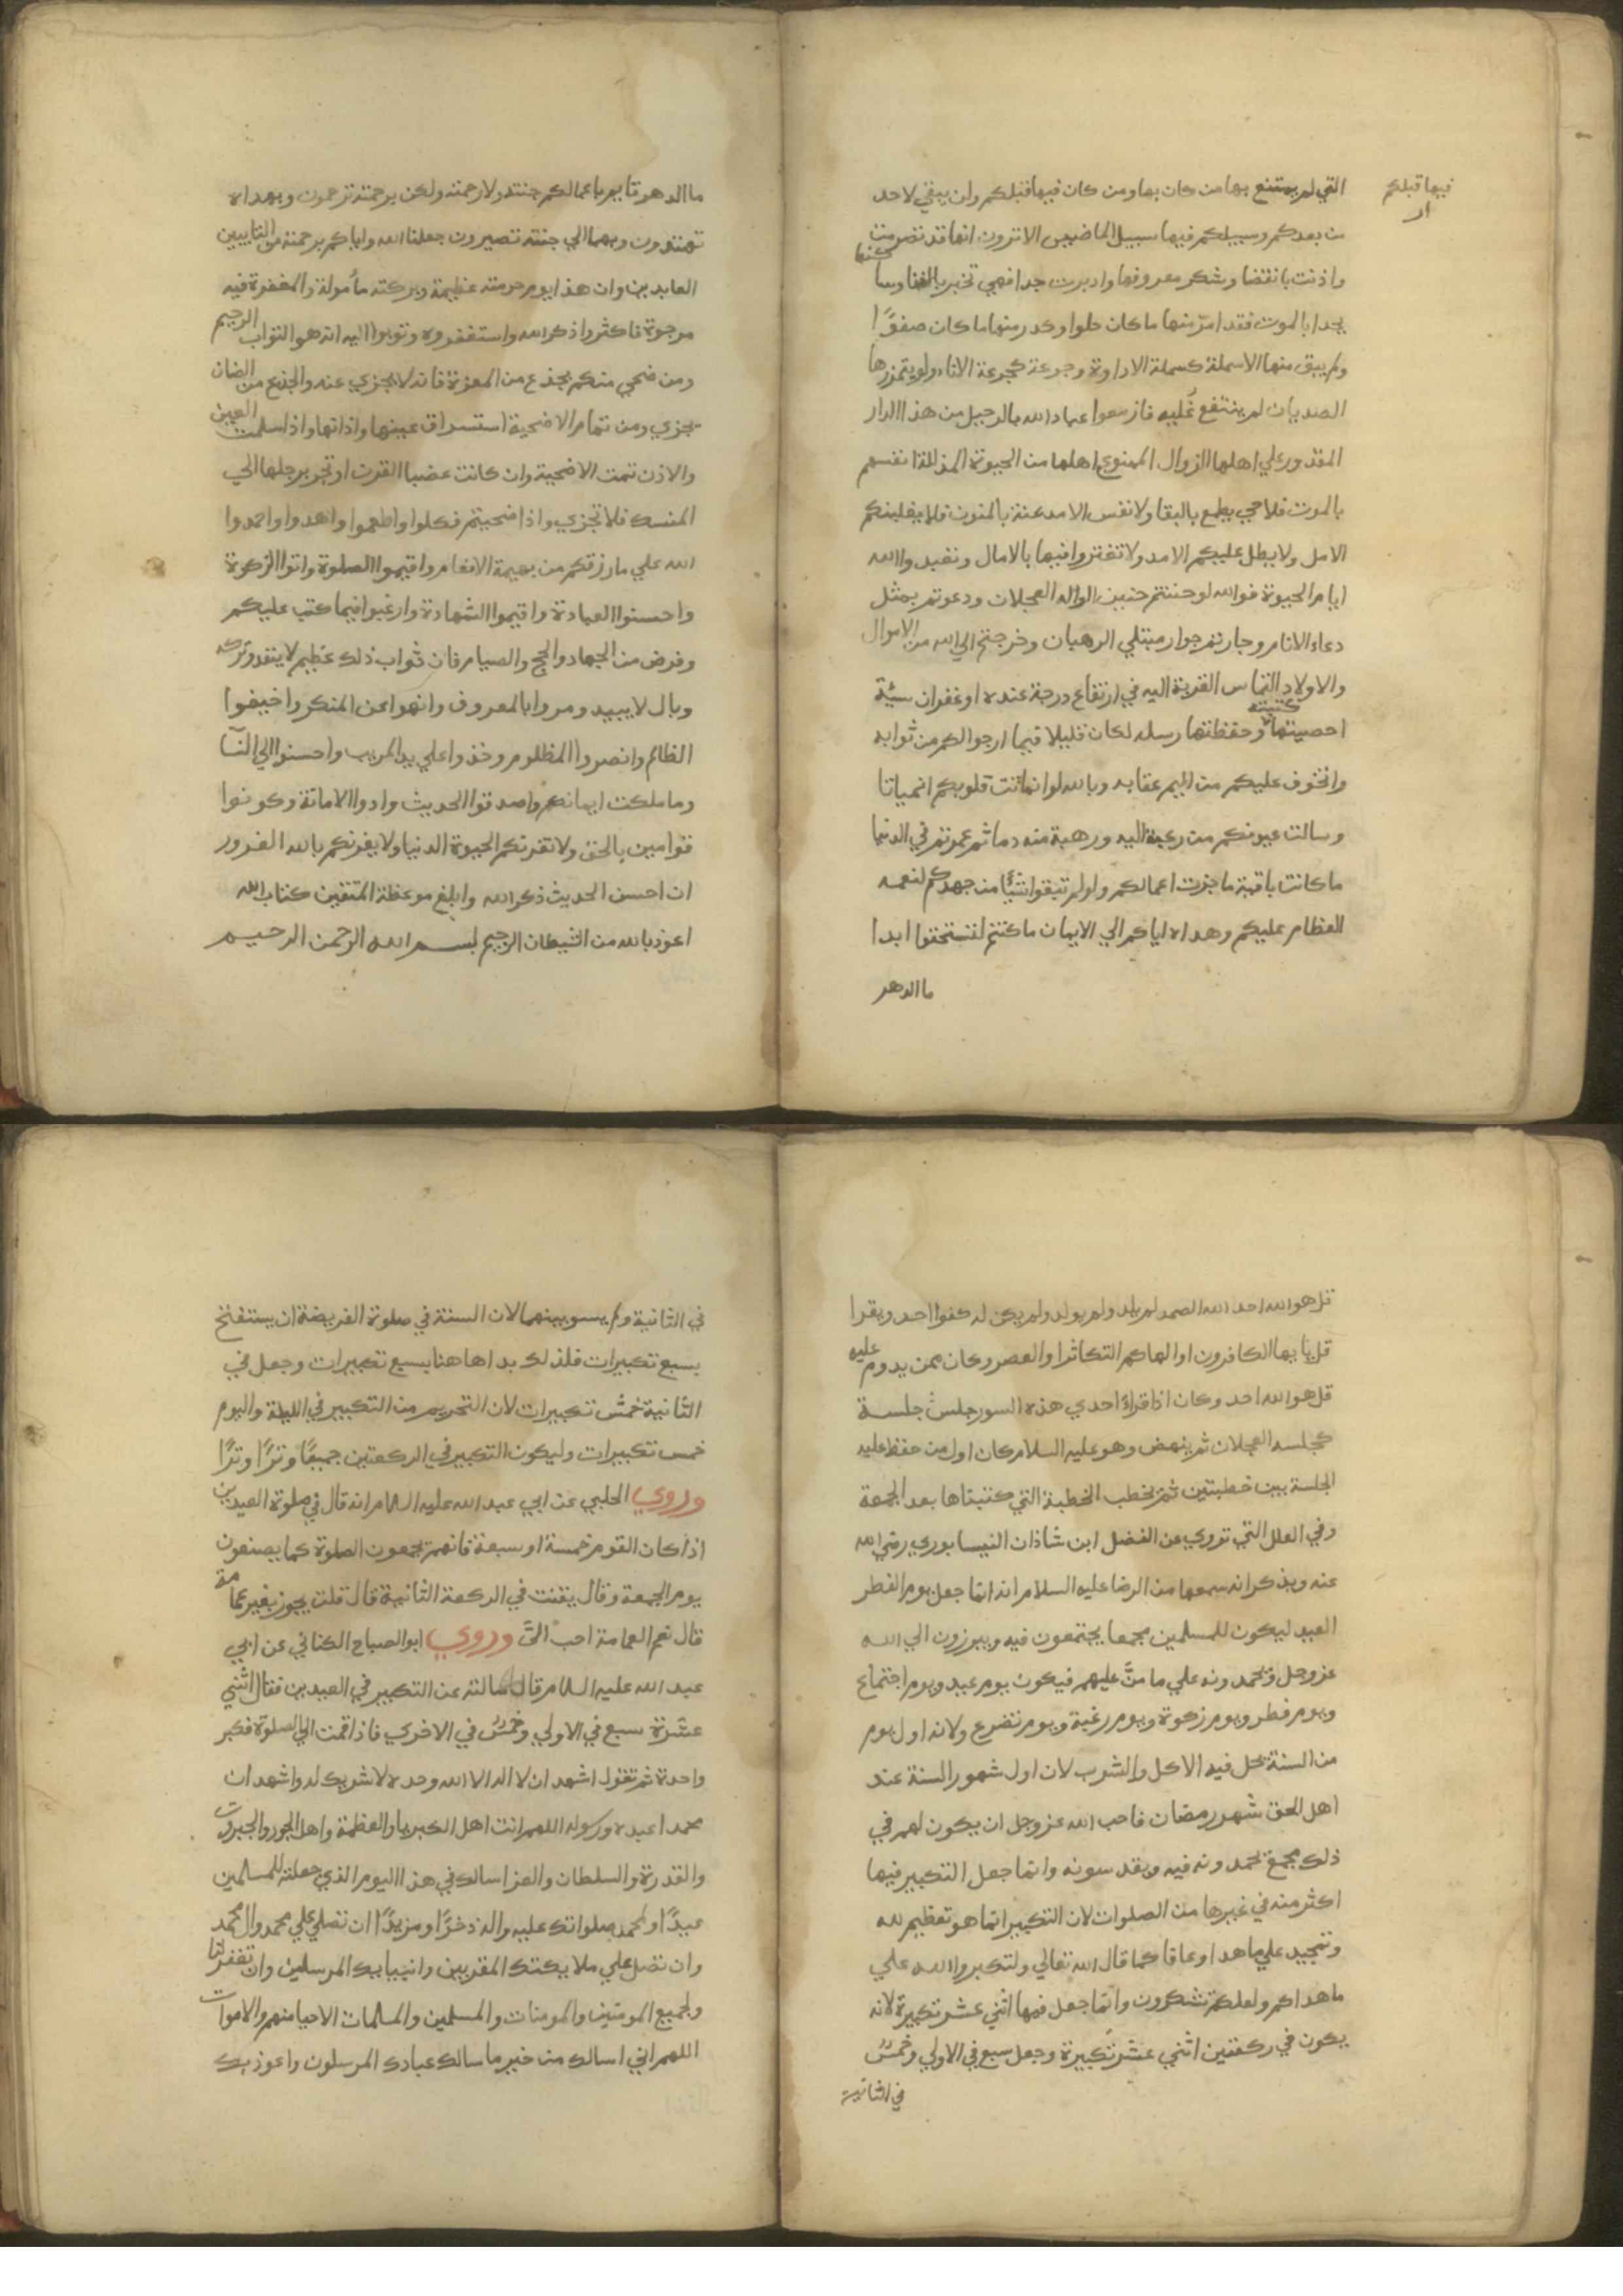 فيها قبلكم
التي لم يمتنع بها من كان بها ومن كان فيها قبلكم ولن يبقي لاحد
من بعدكم وسبيلكم فيها سبيل الماضين الا ترون انها قد تصرمت
واذنت بانقضا وتنكر معروفها وادبرت جدا فهي تخبر بالفنا وساكنها
يحدا بالموت فقد امرّ منها ما كان حلوا وكدر منها ما كان صفوًا
ولم يبق منها الا سملة كسملة الاداوة وجرعة كجرعة الاناء ولو يتمززها
الصديان لم ينتفع غُليه فازمعوا عباد الله بالرحيل من هذا الدار
المقدور علي اهلها الزوال الممنوع اهلها من الحيوة المذللة انفسهم
بالموت فلا حي يطمع بالبقا ولا نفس الا مدعنة بالمنون فلا يغلبنكم
الامل ولا يطل عليكم الامد ولا تغتروا فيها بالامال وتعبدوا الله
ايام الحيوة فوالله لو حننتم حنين الواله العجلان ودعوتم بمثل
دعاء الانام وجارتم جوار مبتلي الرهبان وخرجتم الي الله من الاموال
والاولاد التماس القربة اليه في ارتفاع درجة عنده او غفران سيئة
احصيتها كتبته وحفظتها رسله لكان قليلا فيما ارجوا لكم من ثوابه
واتخوف عليكم من اليم عقابه وبالله لو انماثت قلوبكم انمياثا
وسالت عيونكم من رغبة اليه ورهبة منه دما ثم عمرتم في الدنيا
ما كانت باقية ما جزت اعمالكم ولو لم تبقوا شيًا من جهدكم لنعمه
العظام عليكم وهداه اياكم الي الايمان ما كنتم لتستحقوا ابدا
ما الدهر
ما الدهر قايم باعمالكم جنته ولا رحمته ولكن برحمته ترحمون وبهداه
تهتدون وبهما الي جنته تصيرون جعلنا الله واياكم برحمته من التايبين
العابدين وان هذا يوم حرمته عظيمة وبركته مأمولة والمغفرة فيه
مرجوة فاكثروا ذكر الله واستغفروه وتوبوا اليه انه هو التواب الرحيم
ومن ضحي منكم بجذع من المعزة فانه لا يجزي عنه والجذع من الضان
يجزي ومن تمام الاضحية استشراق عينها واذانها واذا سلمت العين
والاذن تمت الاضحية وان كانت عضبا القرن او تجر برجلها الي
المنسك فلا تجزي واذا ضحيتم فكلوا واطعموا واهدوا واحمدوا
الله علي ما رزقكم من بهيمة الانعام واقيموا الصلوة واتوا الزكوة
واحسنوا العبادة واقيموا الشهادة وارغبوا فيما كتب عليكم
وفرض من الجهاد والحج والصيام فان ثواب ذلك عظيم لا ينفد وتركه
وبال لا يبيد ومروا بالمعروف وانهوا عن المنكر واخيفوا
الظالم وانصروا المظلوم وخذوا علي يد المريب واحسنوا الي النسا
وما ملكت ايمانكم واصدقوا الحديث وادوا الامانة وكونوا
قوامين بالحق ولا تغرنكم الحيوة الدنيا ولا يغرنكم بالله الغرور
ان احسن الحديث ذكر الله وابلغ موعظة المتقين كتاب الله
اعوذ بالله من الشيطان الرجيم بسم الله الرحمن الرحيم
قل هو الله احد الله الصمد لم يلد ولم يولد ولم يكن له كفوا احد ويقرا
قل يا يها الكافرون او الهاكم التكاثر او العصر وكان ممن يدوم عليه
قل هو الله احد وكان اذا قراءَ احدي هذه السور جلس جلسة
كجلسة العجلان ثم ينهض وهو عليه السلام كان اول من حفظ عليه
الجلسة بين خطبتين ثم يخطب الخطبة التي كتبناها بعد الجمعة
وفي العلل التي تروي عن الفضل ابن شاذان النيسابوري رضي الله
عنه ويذكر انه سمعها من الرضا عليه السلام انه انما جعل يوم الفطر
العيد ليكون للمسلمين مجمعا يجتمعون فيه ويبرزون الي الله
عز وجل فيحمدونه علي ما منَّ عليهم فيكون يوم عيد ويوم اجتماع
ويوم فطر ويوم زكوة ويوم رغبة ويوم تضرع ولانه اول يوم
من السنة يحل فيه الاكل والشرب لان اول شهور السنة عند
اهل الحق شهر رمضان فاحب الله عز وجل ان يكون لهم في
ذلك مجمع يحمدونه فيه ويقدسونه وانما جعل التكبير فيها
اكثر منه في غيرها من الصلوات لان التكبير انما هو تعظيم لله
وتمجيد علي ما هدا وعافا كما قال الله تعالي ولتكبروا الله علي
ما هداكم ولعلكم تشكرون وانما جعل فيها اثني عشر تكبيرة لانه
يكون في ركعتين اثني عشر تكبيرة وجعل سبع في الاولي وخمسٌ
في الثانية
في الثانية ولم يسو بينهما لان السنة في صلوة الفريضة ان يستفتح
بسبع تكبيرات فلذلك بدا هاهنا بسبع تكبيرات وجعل في
الثانية خمس تكبيرات لان التحريم من التكبير في الليلة واليوم
خمس تكبيرات وليكون التكبير في الركعتين جميعًا وترًا وترًا
وروي الحلبي عن ابي عبد الله عليه السلام انه قال في صلوة العيدين
اذا كان القوم خمسة او سبعة فانهم يجمعون الصلوة كما يصنعون
يوم الجمعة وقال يقنت في الركعة الثانية قال قلت يجوز بغير عمامة
قال نعم العمامة احب اليَّ وروي ابو الصباح الكناني عن ابي
عبد الله عليه السلام قال سالته عن التكبير في العيدين فقال اثني
عشرة سبع في الاولي وخمسٌ في الاخري فاذا قمت الي الصلوة فكبر
واحدة ثم تقول اشهد ان لا اله الا الله وحده لا شريك له واشهد ان
محمدا عبده ورسوله اللهم انت اهل الكبريا والعظمة واهل الجود والجبروت
والقدرة والسلطان والعز اسالك في هذا اليوم الذي جعلته للمسلمين
عيدًا ولمحمد صلواتك عليه واله ذخرًا ومزيدًا ان تصلي علي محمد وال محمد
وان تصل علي ملايكتك المقربين وانبيايك المرسلين وان تغفر لنا
ولجميع المومنين والمومنات والمسلمين والمسلمات الاحيا منهم والاموات
اللهم اني اسالك من خير ما سالك عبادك المرسلون واعوذ بك